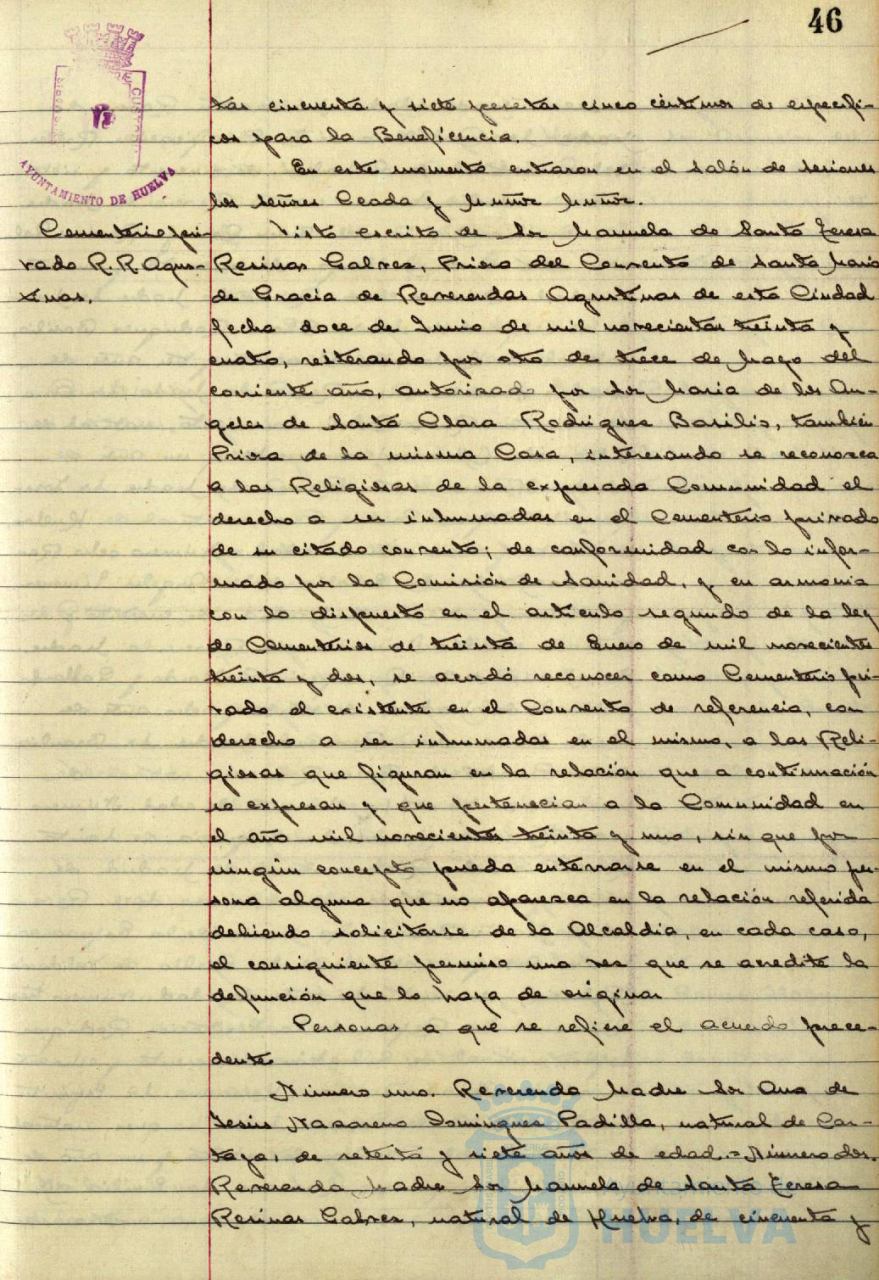 46
AYUNTAMIENTO DE HUELVA
tas cincuenta y siete pesetas cinco céntimos de específi-
cos para la Beneficencia.
En este momento entraron en el salón de sesiones
los señores Ceada y Muñoz Muñoz.
Cementerio pri-
vado R. R. Agus-
tinas.
Visto escrito de Sor Manuela de Santa Teresa
Resinas Galvez, Priora del Convento de Santa Maria
de Gracia de Reverendas Agustinas de esta Ciudad
fecha doce de Junio de mil novecientos treinta y
cuatro, reiterando por otro de trece de Mayo del
corriente año, autorizado por Sor Maria de los An-
geles de Santa Clara Rodriguez Basilio, también
Priora de la misma Casa, interesando se reconozca
a las Religiosas de la expresada Comunidad el
derecho a ser inhumadas en el Cementerio privado
de su citado convento; de conformidad con lo infor-
mado por la Comisión de Sanidad, y en armonia
con lo dispuesto en el articulo segundo de la ley
de Cementerios de treinta de Enero de mil novecientos
treinta y dos, se acordó reconocer como Cementerio pri-
vado el existente en el Convento de referencia, con
derecho a ser inhumadas en el mismo, a las Reli-
giosas que figuran en la relación que a continuación
se expresan y que pertenecian a la Comunidad en
el año mil novecientos treinta y uno, sin que por
ningún concepto pueda enterrarse en el mismo per-
sona alguna que no aparezca en la relación referida
debiendo solicitarse de la Alcaldia, en cada caso,
el consiguiente permiso una vez que se acredite la
defunción que lo haya de originar
Personas a que se refiere el acuerdo prece-
dente
Número uno. Reverenda Madre Sor Ana de
Jesús Nazareno Dominguez Padilla, natural de Car-
taya, de setenta y siete años de edad.=Número dos.
Reverenda Madre Sor Manuela de Santa Teresa
Resinas Galvez, natural de Huelva, de cincuenta y
HUELVA